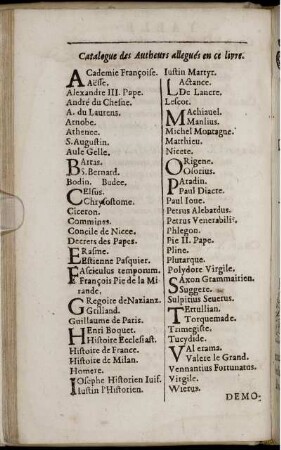 Catalogue des Autheurs allegués en ce livre.
ACademie Françoise.
Aësse.
Alexandre III. Pape.
André du Chesne.
A. du Laurens.
Arnobe.
Athenee.
S. Augustin.
Aule Gelle.
BArtas.
S. Bernard.
Bodin. Budee.
CElsus.
Chrysostome.
Ciceron.
Commines.
Concile de Nicee.
Decrets des Papes.
ERasme.
Estienne Pasquier.
FAsciculus temporum.
François Pie de la Mirande.
GRegoire de Nazianz.
Grilland.
Guillaume de Paris.
HEnri Boquet.
Histoire Ecclesiast.
Histoire de France.
Histoire de Milan.
Homere.
IOsephe Historien Iuif.
Iustin l'Historien.
Iustin Martyr.
LActance.
De Lancre.
Lescot.
MAchiauel.
Manlius.
Michel Montagne.
Matthieu.
Nicete.
ORigene.
Osorius.
PAradin.
Paul Diacre.
Paul Ioue.
Petrus Alebardus.
Petrus Venerabilis.
Phlegon.
Pie II. Pape.
Pline.
Plutarque.
Polydore Virgile.
SAxon Grammairien.
Suggere.
Sulpitius Seuerus.
TErtullian.
Torquemade.
Trimegiste.
Tucydide.
VAlerama.
Valere le Grand.
Vennantius Fortunatus.
Virgile.
Wierus.
DEMO-